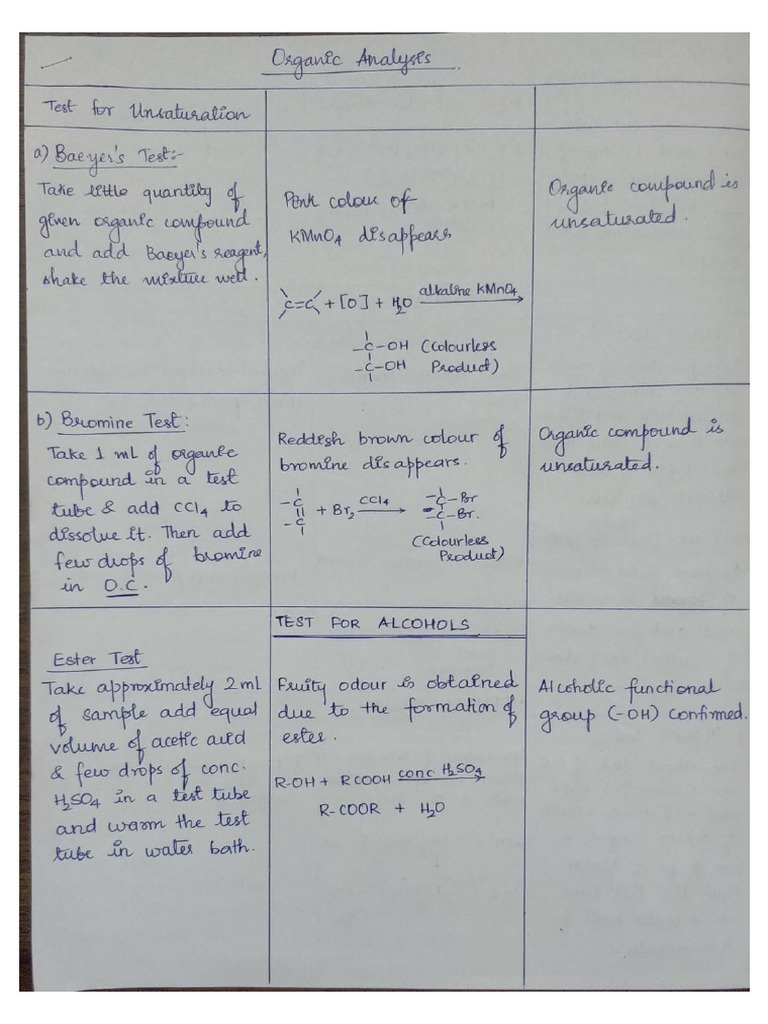 Organic Analysis
Test for Unsaturation
a) Baeyer's Test:-
Take little quantity of
given organic compound
and add Baeyer's reagent,
shake the mixture well.
Pink colour of
KMnO4 disappears
C=C + [O] + H2O alkaline KMnO4
-C-OH (Colourless
-C-OH Product)
Organic compound is
unsaturated.
b) Bromine Test:
Take 1 mL of organic
compound in a test
tube & add CCl4 to
dissolve it. Then add
few drops of bromine
in O.C.
Reddish brown colour of
bromine disappears.
-C
|| + Br2 CCl4 →
-C
-C-Br
-C-Br.
(Colourless
Product)
Organic compound is
unsaturated.
TEST FOR ALCOHOLS
Ester Test
Take approximately 2 mL
of sample add equal
volume of acetic acid
& few drops of conc.
H2SO4 in a test tube
and warm the test
tube in water bath.
Fruity odour is obtained
due to the formation of
ester.
R-OH + RCOOH conc H2SO4
R-COOR + H2O
Alcoholic functional
group (-OH) confirmed.